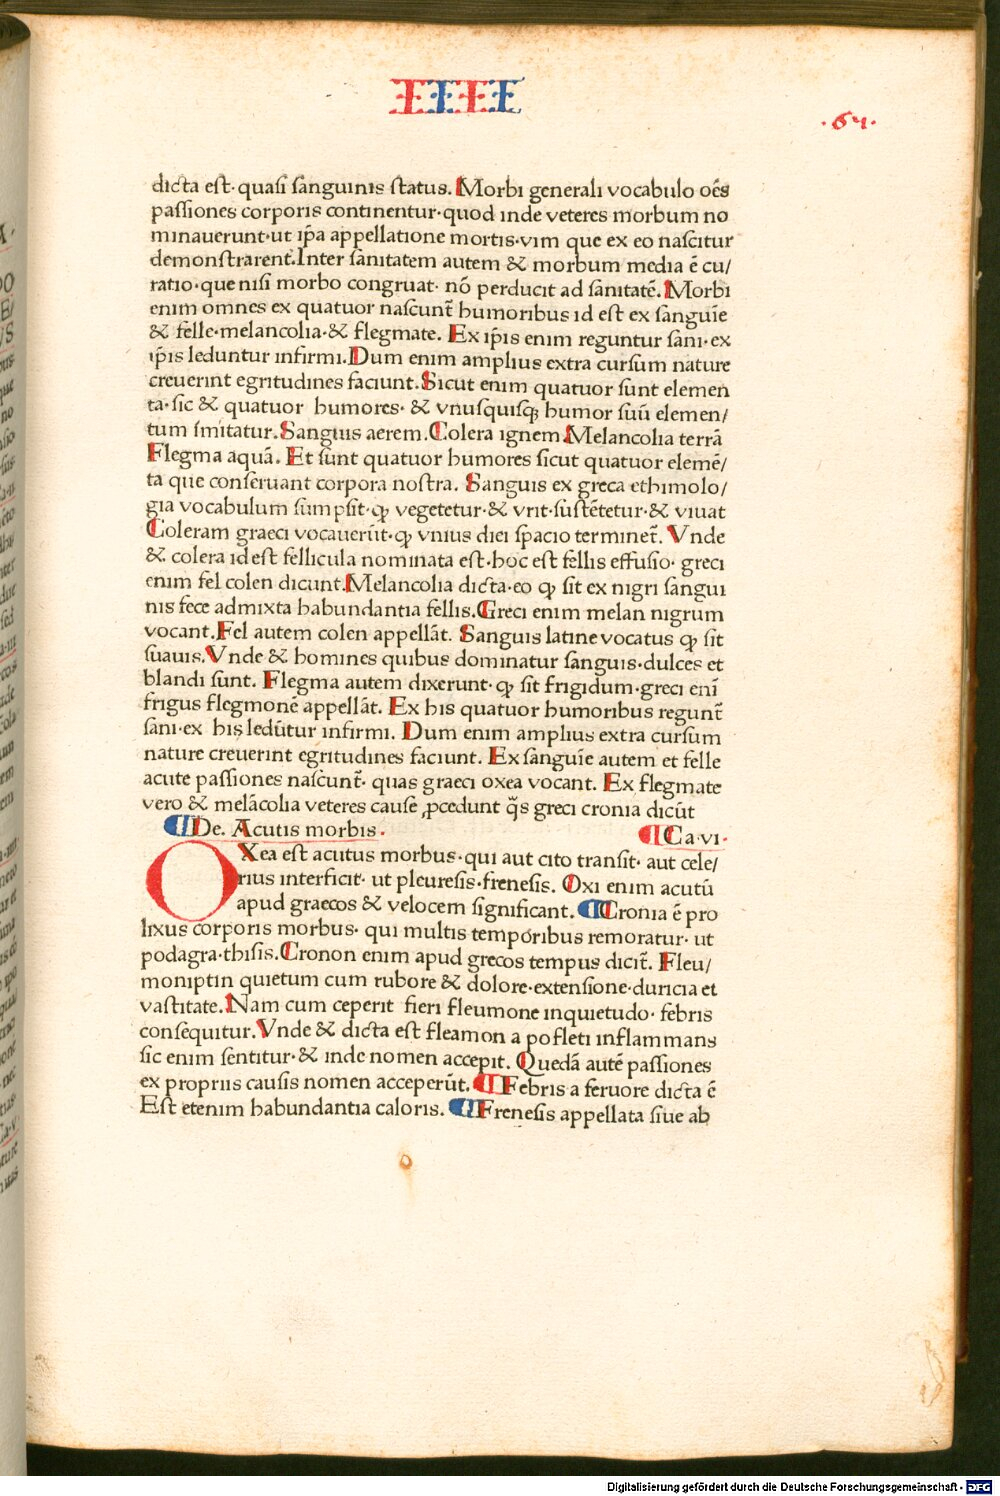 IIII
·64·
dicta est· quasi sanguinis status. Morbi generali vocabulo oēs
passiones corporis continentur·quod inde veteres morbum no
minauerunt·ut ip̄a appellatione mortis·vim que ex eo nascitur
demonstrarent.Inter sanitatem autem & morbum media ē cu/
ratio·que nisi morbo congruat· nō perducit ad sanitatē. Morbi
enim omnes ex quatuor nascunt̄ humoribus id est ex sanguīe
& felle·melancolia·& flegmate. Ex ip̄is enim reguntur sani·ex
ip̄is leduntur infirmi.Dum enim amplius extra cursum nature
creuerint egritudines faciunt.Sicut enim quatuor sunt elemen
ta·sic & quatuor humores· & vnusquisqꝫ humor suū elemen/
tum imitatur.Sanguis aerem.Colera ignem.Melancolia terrā
Flegma aquā. Et sunt quatuor humores sicut quatuor elemē/
ta que conseruant corpora nostra. Sanguis ex greca ethimolo/
gia vocabulum sumpsit·ꝙ vegetetur·& vrit·sustētetur·& viuat
Coleram graeci vocauerūt·ꝙ vnius diei spacio terminet̄. Vnde
& colera id est fellicula nominata est·hoc est fellis effusio· greci
enim fel colen dicunt.Melancolia dicta·eo ꝙ sit ex nigri sangui
nis fece admixta habundantia fellis.Greci enim melan nigrum
vocant.Fel autem colen appellāt. Sanguis latine vocatus ꝙ sit
suauis.Vnde & homines quibus dominatur sanguis·dulces et
blandi sunt. Flegma autem dixerunt·ꝙ sit frigidum·greci enī
frigus flegmonē appellāt. Ex his quatuor humoribus regunt̄
sani·ex his ledūtur infirmi. Dum enim amplius extra cursum
nature creuerint egritudines faciunt. Ex sanguīe autem et felle
acute passiones nascunt̄· quas graeci oxea vocant. Ex flegmate
vero & melācolia veteres cause ꝓcedunt q̄s greci cronia dicūt
¶De. Acutis morbis· ¶Ca·vi·
OXea est acutus morbus·qui aut cito transit· aut cele/
rius interficit· ut pleuresis·frenesis. Oxi enim acutū
apud graecos & velocem significant. ¶Cronia ē pro
lixus corporis morbus· qui multis temporibus remoratur· ut
podagra·thisis.Cronon enim apud grecos tempus dicit̄. Fleu/
moniptin quietum cum rubore & dolore·extensione·duricia et
vastitate.Nam cum ceperit fieri fleumone inquietudo· febris
consequitur.Vnde & dicta est fleamon a pofleti inflammans
sic enim sentitur·& inde nomen accepit. Quedā autē passiones
ex propriis causis nomen acceperūt. ¶Febris a feruore dicta ē
Est etenim habundantia caloris. ¶Frenesis appellata siue ab
Digitalisierung gefördert durch die Deutsche Forschungsgemeinschaft - DFG